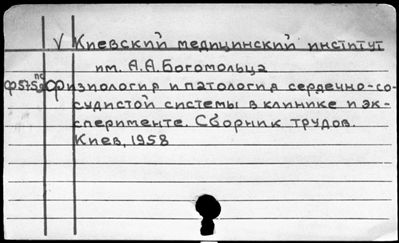 V Киевский медицинский институт
им. А.А.Богомольца
Физиология и патология сердечно-со-
судистой системы в клинике и эк-
сперименте. Сборник трудов.
Киев, 1958